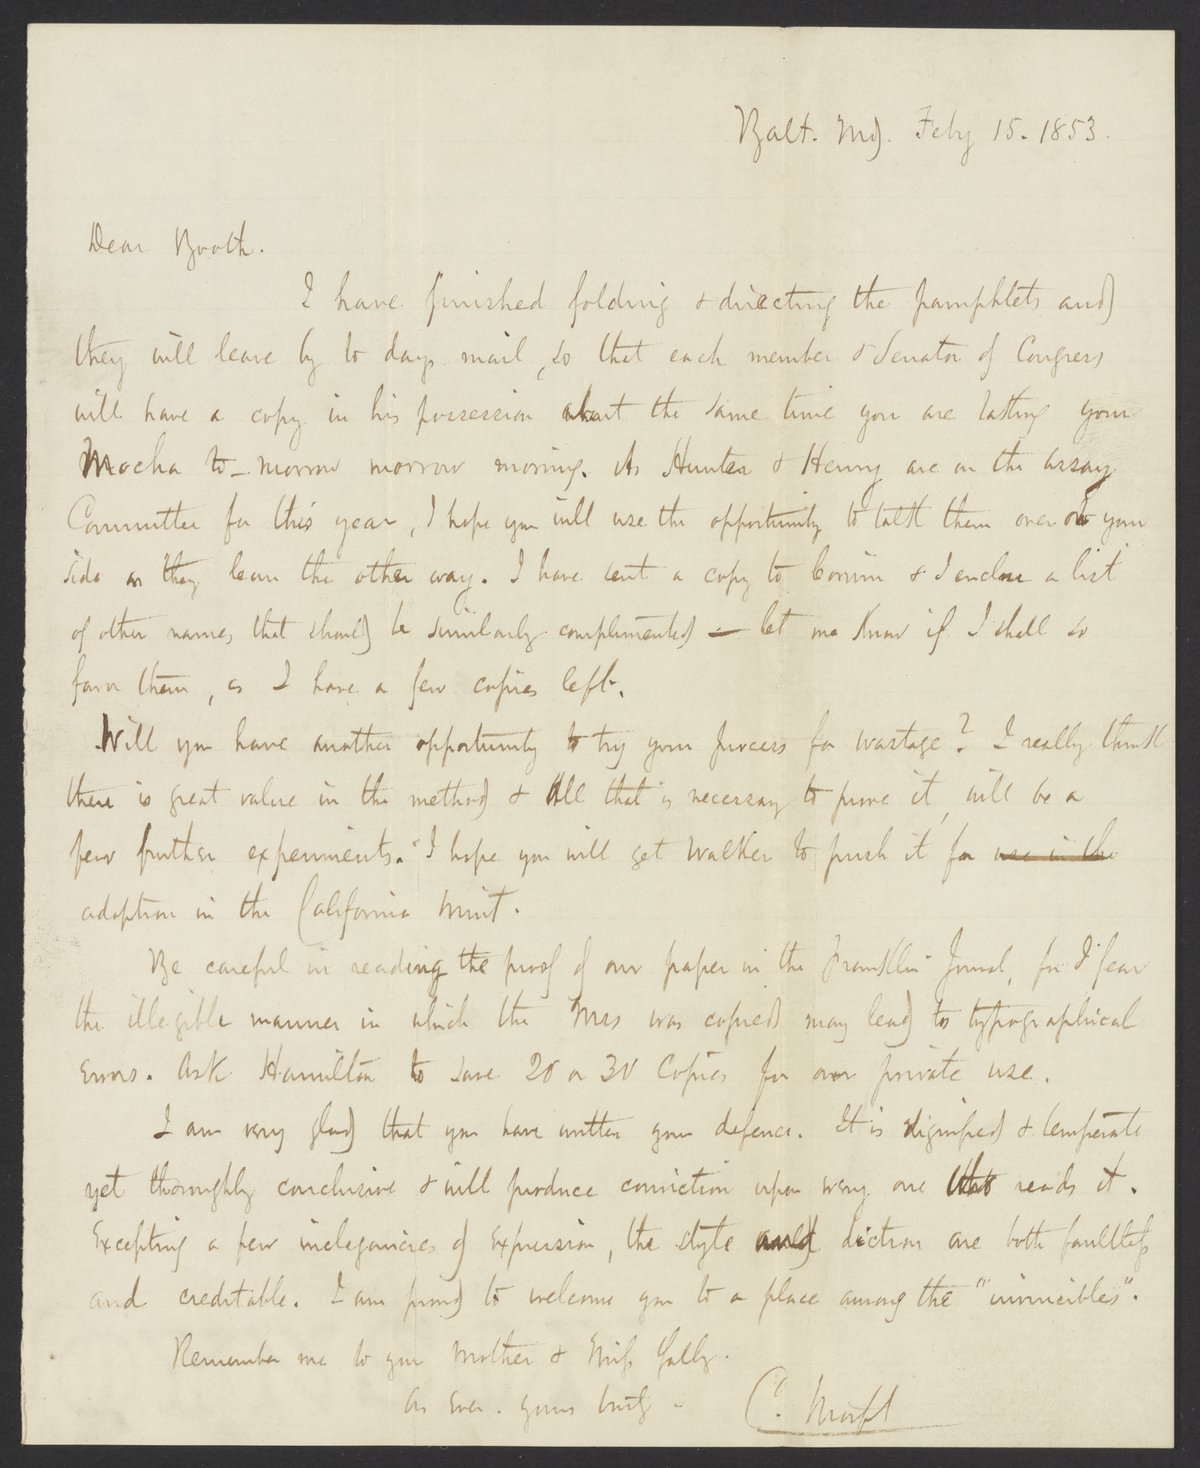 Balt. Md. Feby 15. 1853.
Dear Booth.
I have finished folding & directing the pamphlets and
they will leave by to days mail, so that each member & Senator of Congress
will have a copy in his possession about the same time you are tasting your
Mocha to-morrow morrow morning. As Hunter & Henry are on the assay
Committee for this year, I hope you will use the opportunity to talk them over to your
side as they lean the other way. I have sent a copy to Corwin & I enclose a list
of other names that should be similarly complimented — let me know if I shall so
favor them, as I have a few copies left.
Will you have another opportunity to try your process for wastage? I really think
there is great value in the method & all that is necessary to prove it, will be a
few further experiments. I hope you will get Walker to push it for use in the
adoption in the California Mint.
Be careful in reading the proof of our paper in the Franklin Journal, for I fear
the illegible manner in which the Mss was copied may lead to typographical
errors. Ask Hamilton to save 20 or 30 Copies for our private use.
I am very glad that you have written your defence. It is dignified & temperate
yet thoroughly conclusive & will produce conviction upon every one that reads it.
Excepting a few inelegancies of expression, the style and diction are both faultless
and creditable. I am proud to welcome you to a place among the "invincibles".
Remember me to your Mother & Miss
As ever. yours truly -
C. Morfit